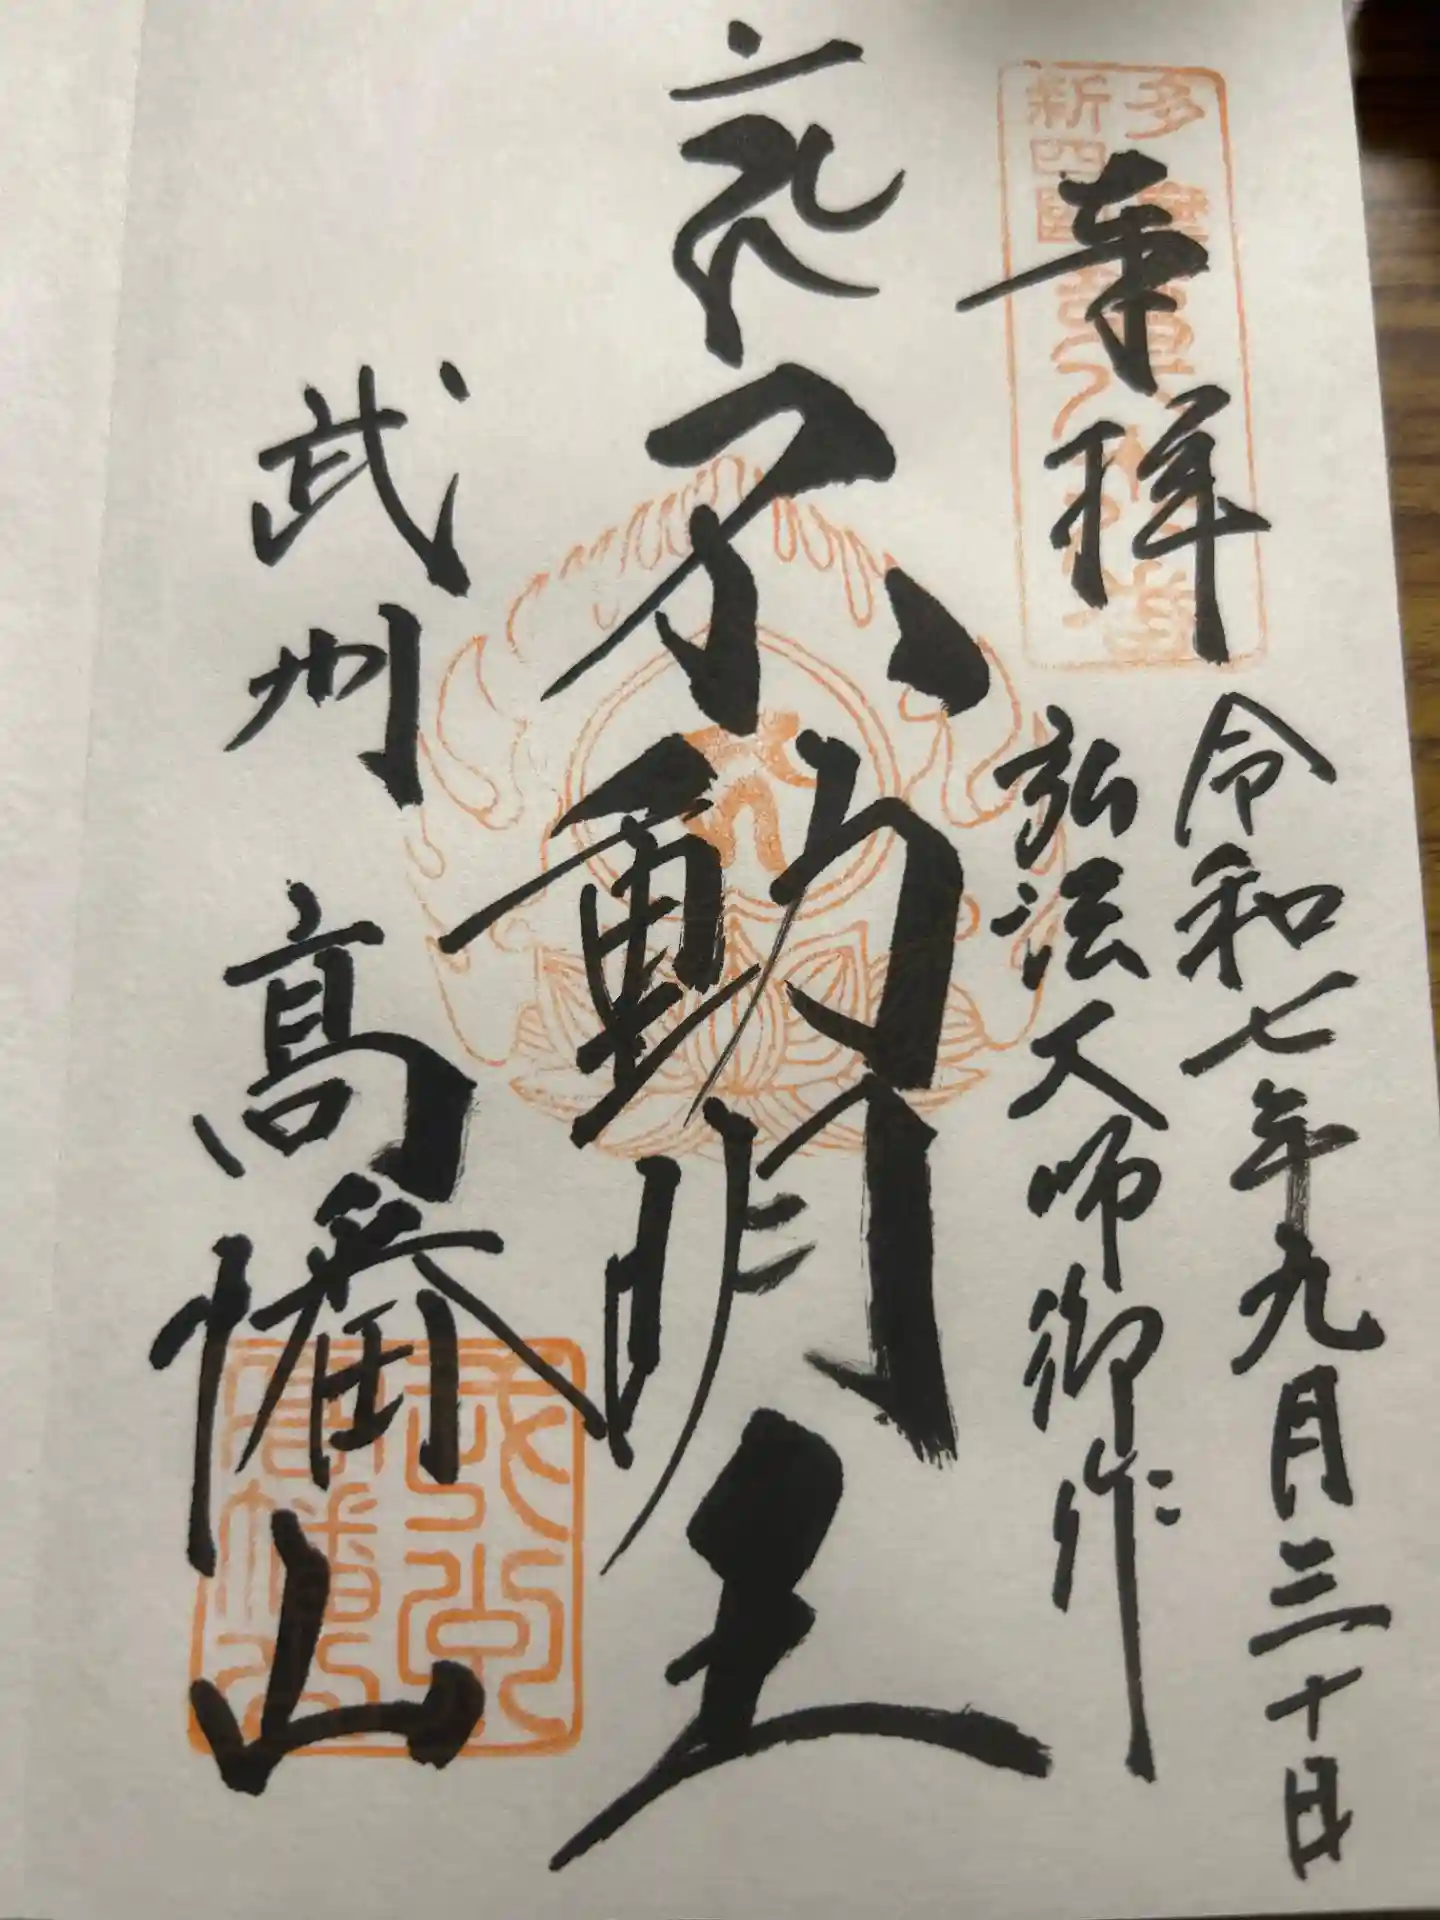 奉拝
多摩
新四國
令和七年九月三十日
弘法大師御作
不動明王
武州 高幡山